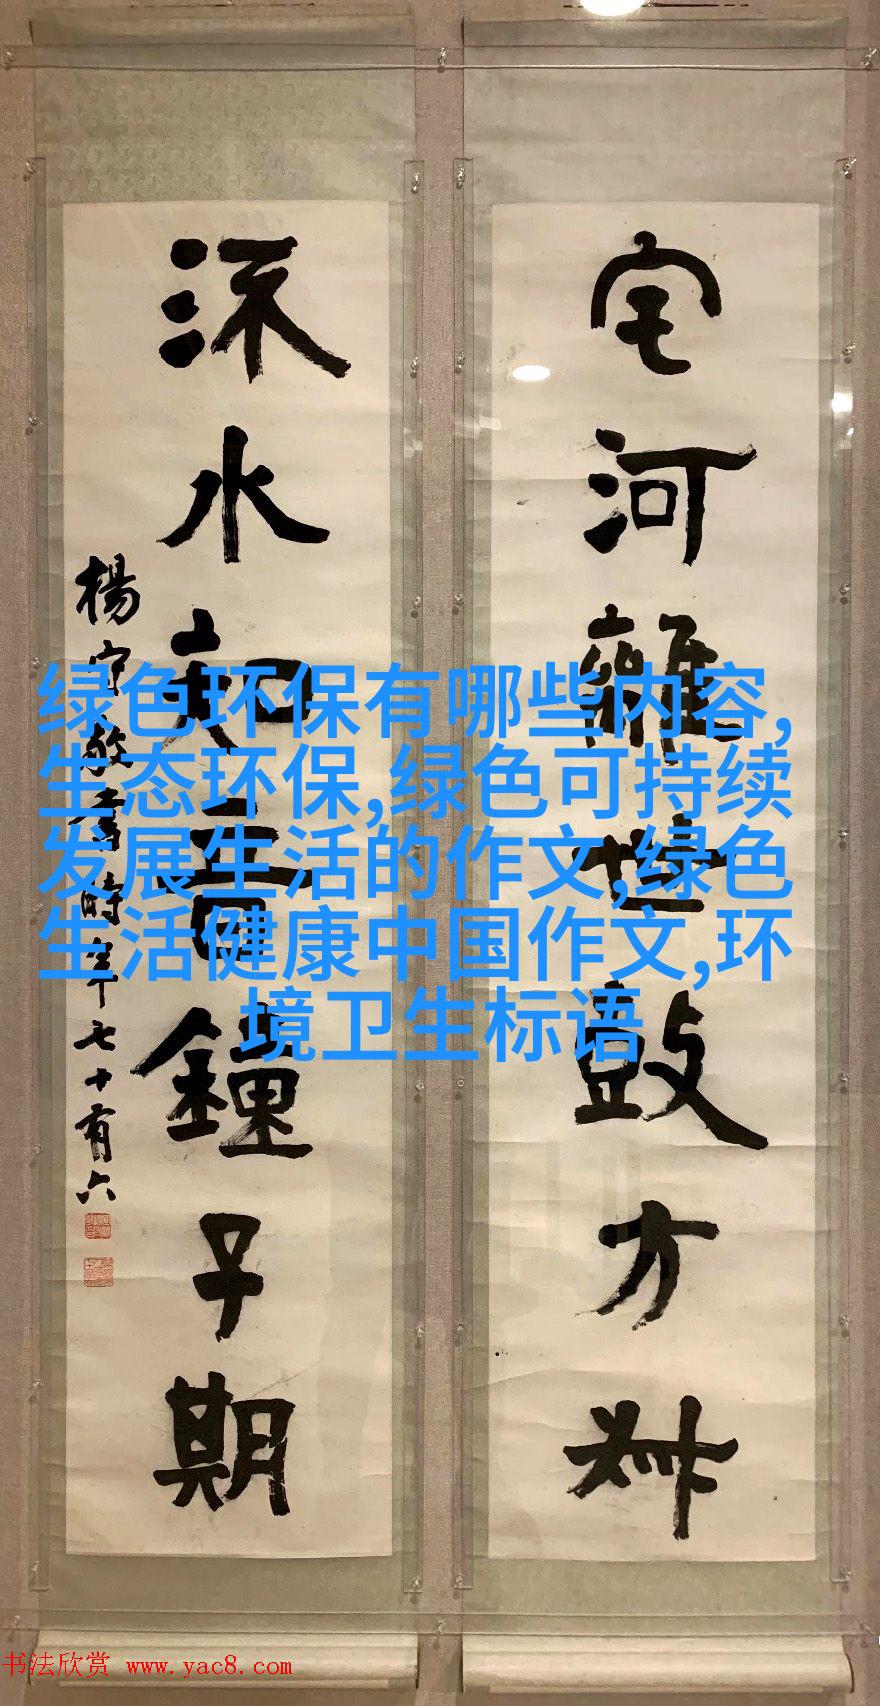 宅河離世鼓方叔
流水知音鐘子期
楊守敬書時年七十有六
绿色环保有哪些内容,
生态环保,绿色可持续
发展生活的作文,绿色
生活健康中国作文,环
境卫生标语
书法欣赏 www.yac8.com